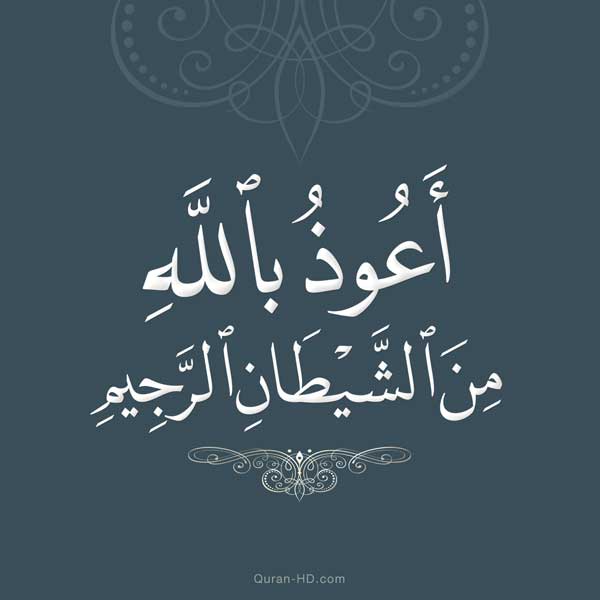 أَعُوذُ بِٱللَّهِ
مِنَ ٱلشَّيْطَانِ ٱلرَّجِيمِ
Quran-HD.com